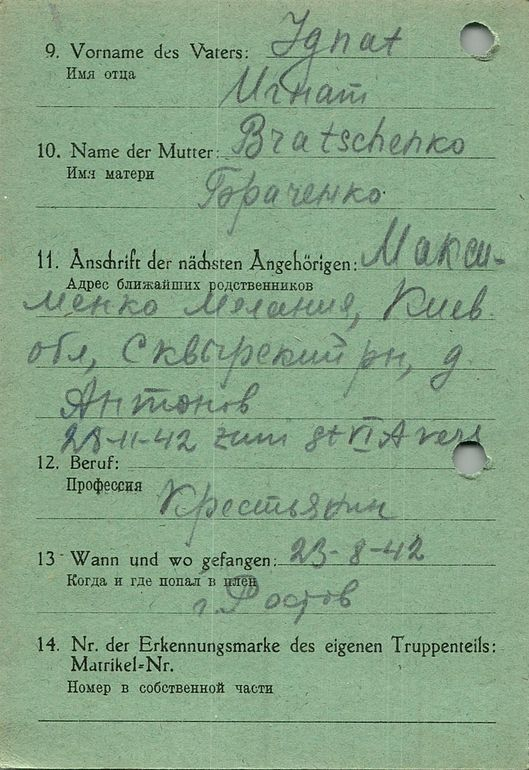 9. Vorname des Vaters: Ignat
Имя отца
Игнат
10. Name der Mutter: Bratschenko
Имя матери
Браченко
11. Anschrift der nächsten Angehörigen: Макси-
Адрес ближайших родственников
менко Мелания, Киев.
обл, Сквырский рн, д.
Антонов
23-11-42 zum St VI A vers
12. Beruf:
Профессия
Крестьянин
13 Wann und wo gefangen: 23-8-42
Когда и где попал в плен
г. Ростов
14. Nr. der Erkennungsmarke des eigenen Truppenteils:
Matrikel-Nr.
Номер в собственной части